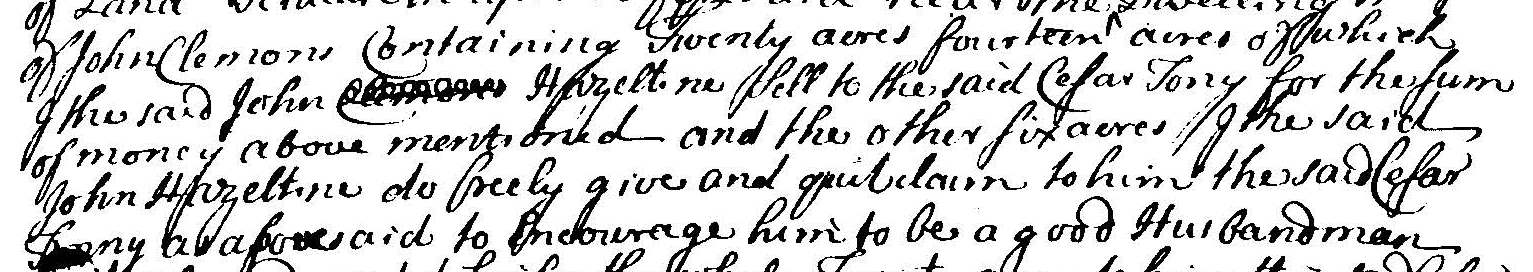 of Land
of John Clemons Containing Twenty acres fourteen acres of which
I the said John Hazeltine sell to the said Cesar Tony for the sum
of money above mentioned and the other six acres I the said
John Hazeltine do freely give and quitclaim to him the said Cesar
Tonny as abovesaid to Encourage him to be a good Husbandman